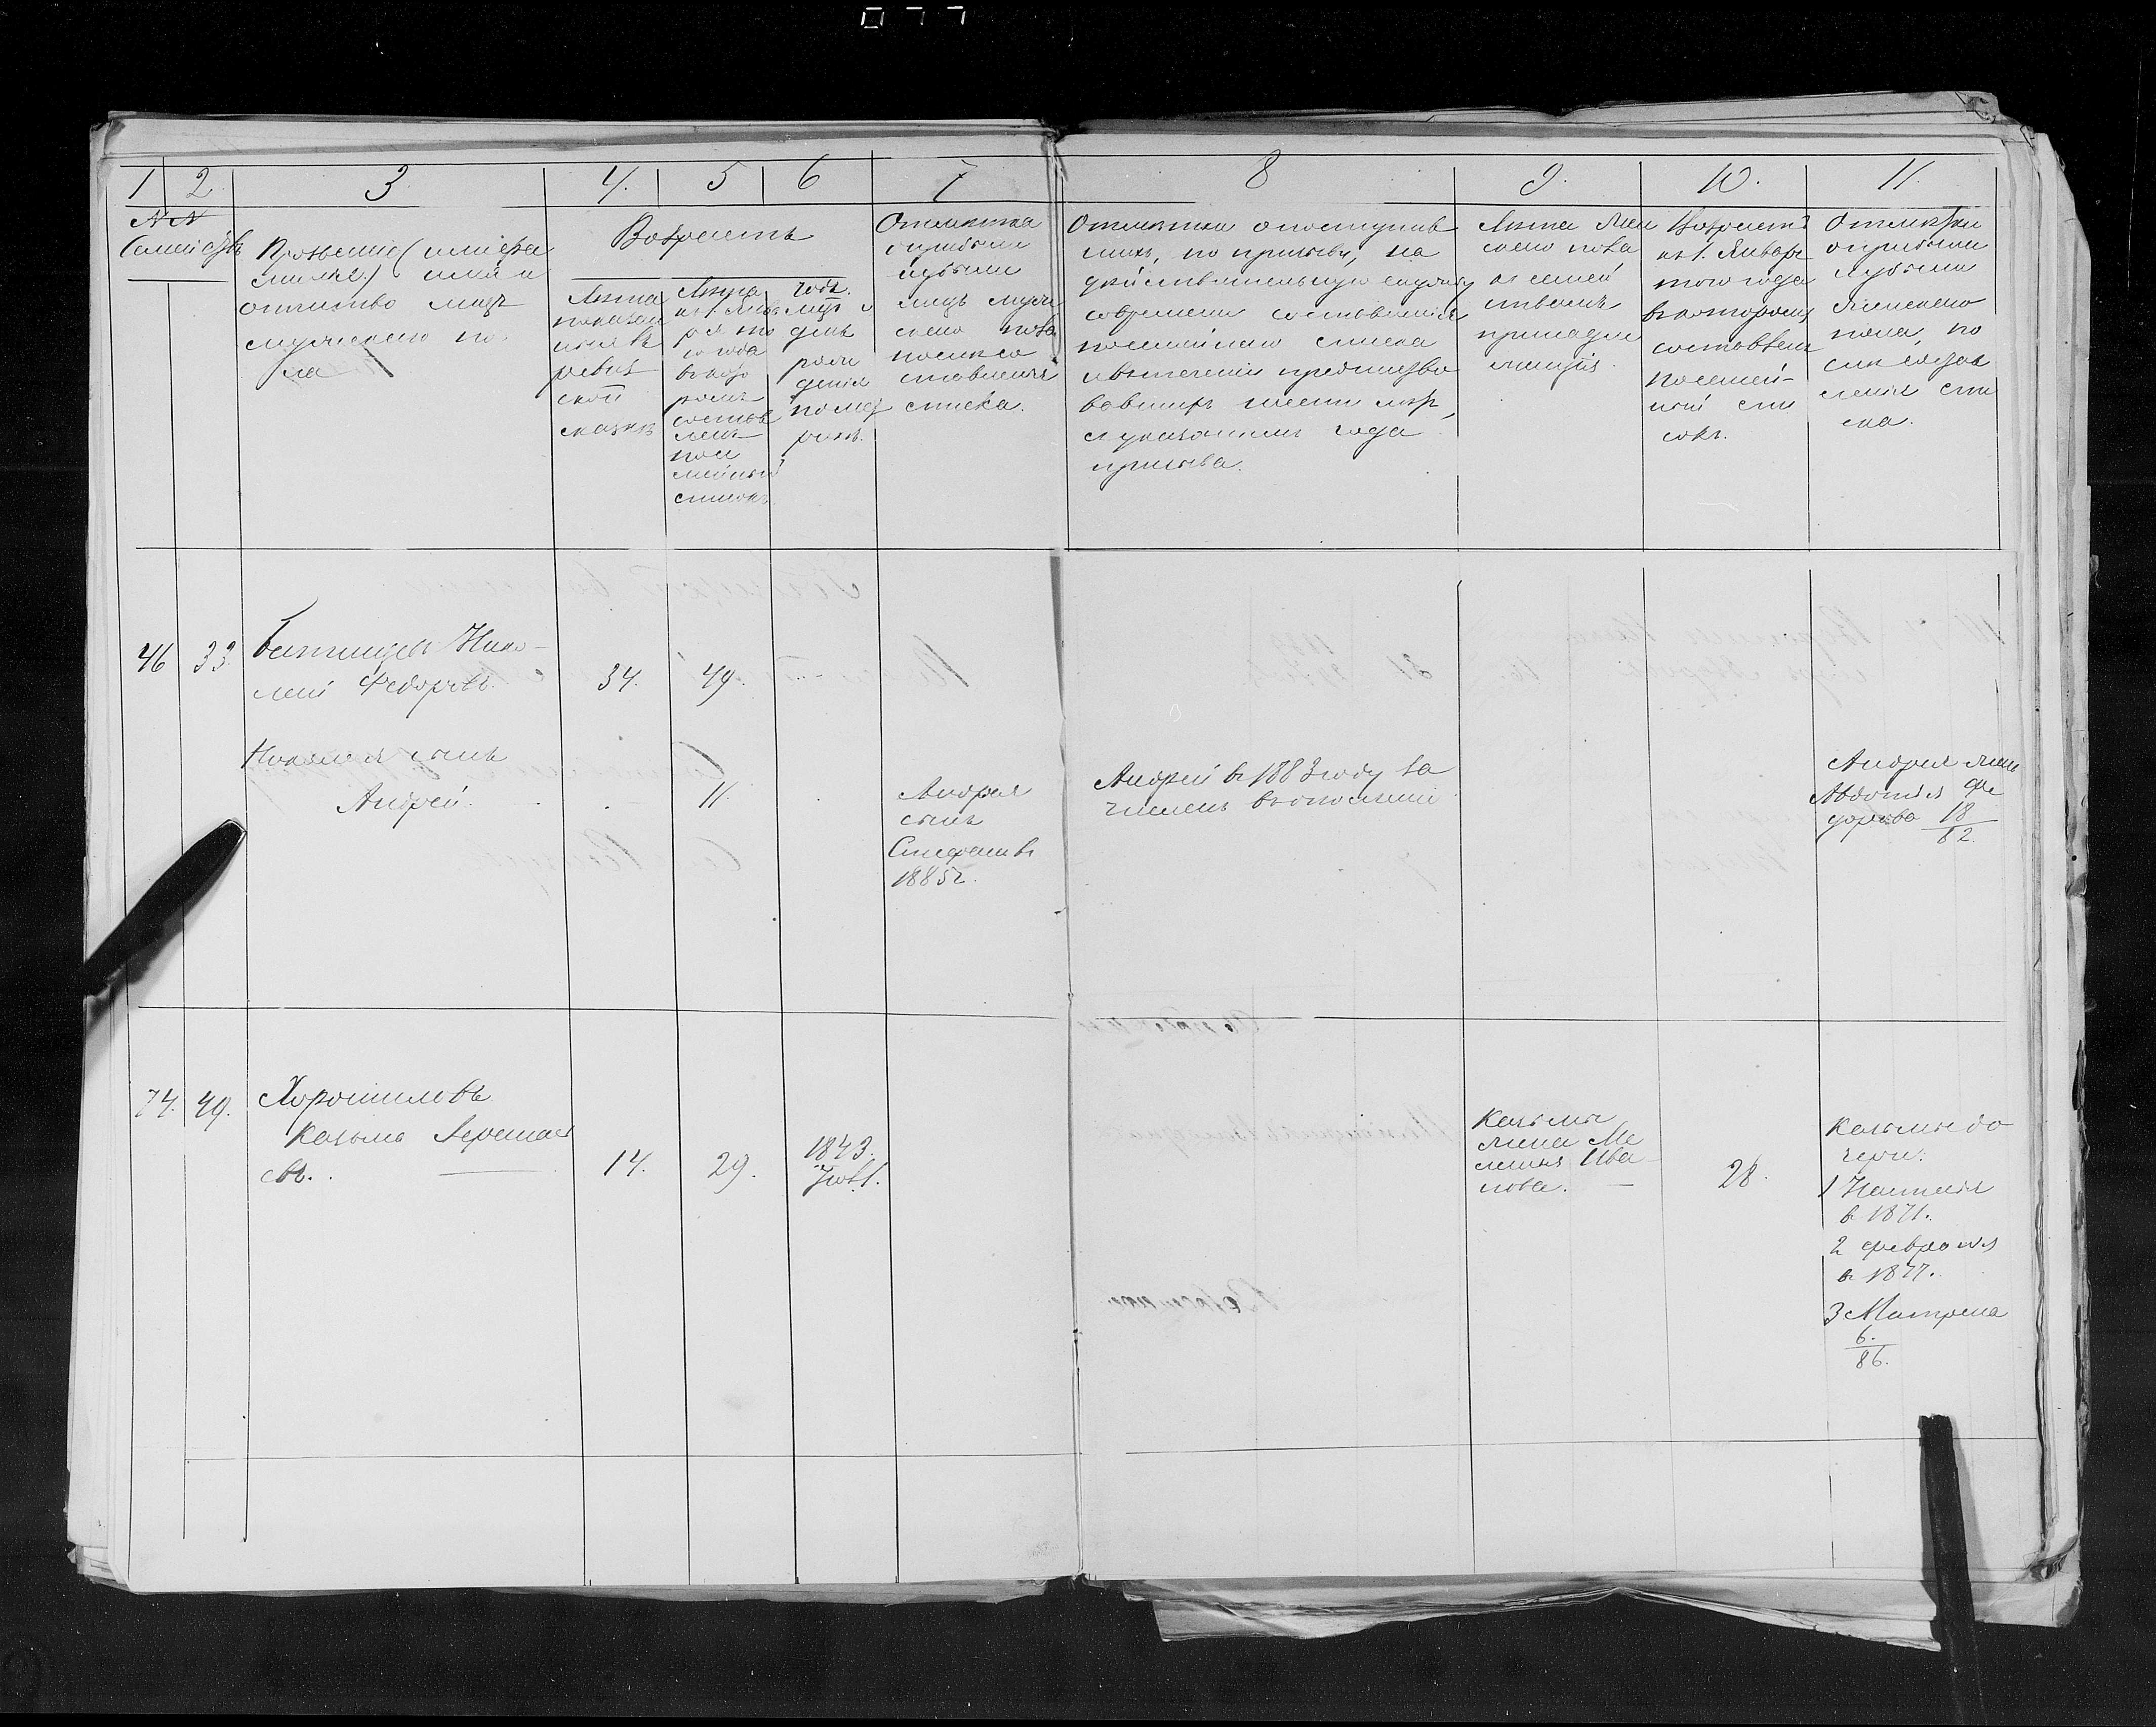 077
1 2 3. 4. 5 6 7
№№
Семействъ
Прозвание (или фа
милие) имя и
отчество лицъ
мужскаго по-
ла
Возрастъ
Лета
показан
ныя въ
ревиз
ской
сказкѣ
Лета
къ 1 Янв
ря то
го года
въ кото
ромъ
состав
ленъ
посе
мейный
списокъ
годъ.
мѣсяцъ и
день
рож
денія
по мет
рикѣ.
Отметка
о прибыли
и убыли
лицъ муж
скаго пола
после со
ставленія
списка.
8 9. 10. 11.
Отметка о поступив
шихъ, по призыву, на
действительную службу
со времени составления
посемейнаго списка
и в течении предшество
вавшихъ шести летъ,
с указанием года
призыва.
Лета жен
скаго пола
къ семей
ствамъ
принадле
жащия.
Возрастъ
къ 1. Январе
того года
в котором
составленъ
посемей-
ный спи
сокъ.
Отметки
о прибыли
и убыли
женскаго
пола, по
списка.
46 33.
Нико-
лай Федоровъ.
34. 49.
Николая сынъ
Андрей.
11.
Андрея
сынъ
Стефанъ въ
1885г.
Андрей в 1883 году за
численъ в ополчение
Андрея жена
Авдотья Фе
дорова 18
82.
74. 49.
Хорошиловъ
Козьма Герасимо
въ.
14. 29.
1843.
Нояб. 1.
Козьмы
жена Ме
ланья Ива
нова.
28.
Козьмы до
чери:
1 Наталья
в 1871.
2 Февронья
в 1877.
3 Матрена
6.
86.